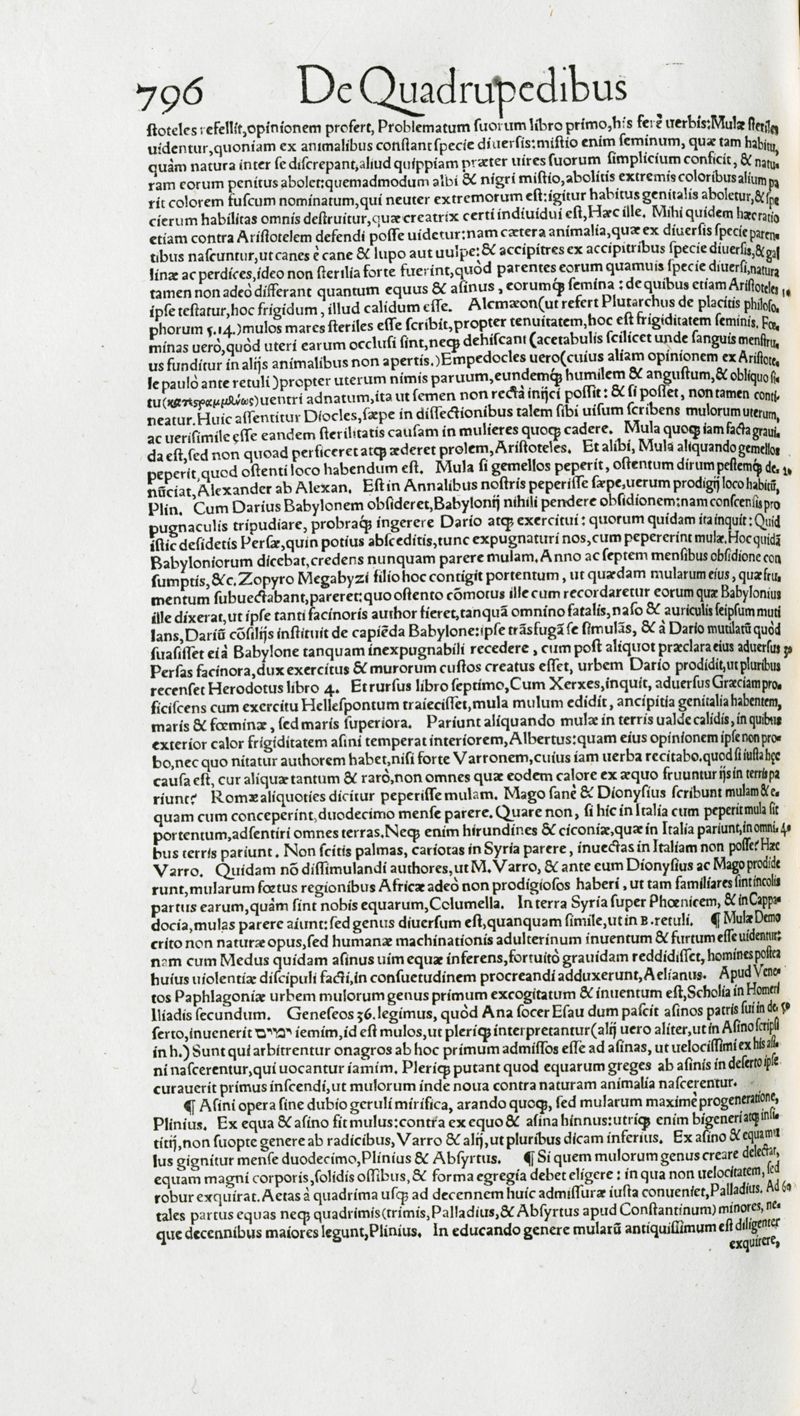 796 De Quadrupedibus
ſtoteles refellit, opinionem profert, Problematum ſuorum libro primo, his ferè uerbis: Mulæ ſteriles
uidentur, quoniam ex animalibus conſtant ſpecie diuerſis: miſtio enim ſeminum, quæ tam habitu,
quàm natura inter ſe diſcrepant, aliud quippiam præter uires ſuorum ſimplicium conficit, & natu-
ram eorum penitus abolet: quemadmodum albi & nigri miſtio, abolitis extremis coloribus alium pa
rit colorem fuſcum nominatum, qui neuter extremorum eſt: igitur habitus genitalis aboletur, & ſpe
cierum habilitas omnis deſtruitur, quæ creatrix certi indiuidui eſt, Hæc ille. Mihi quidem hæc ratio
etiam contra Ariſtotelem defendi poſſe uidetur: nam cætera animalia, quæ ex diuerſis ſpecie paren-
tibus naſcuntur, ut canes è cane & lupo aut uulpe: & accipitres ex accipitribus ſpecie diuerſis, & gal
linæ ac perdices, ideo non ſterilia forte fuerint, quòd parentes eorum quamuis ſpecie diuerſi, natura
tamen non adeò differant quantum equus & aſinus, eorumq́; ſemina: de quibus etiam Ariſtoteles 10
ipſe teſtatur, hoc frigidum, illud calidum eſſe. Alcmæon (ut refert Plutarchus de placitis philoſo-
phorum 5.14.) mulos mares ſteriles eſſe ſcribit, propter tenuitatem, hoc eſt frigiditatem ſeminis. Fœ-
minas uerò, quòd uteri earum occluſi ſint, neq; dehiſcant (acetabulis ſcilicet unde ſanguis menſtru-
us funditur in alijs animalibus non apertis.) Empedocles uero (cuius aliam opinionem ex Ariſtote-
le paulò ante retuli) propter uterum nimis paruum, eundemq́; humilem & anguſtum, & obliquo ſi-
tu () uentri adnatum, ita ut ſemen non rectà inijci poſſit: & ſi poſſet, non tamen conti-
neatur. Huic aſſentitur Diocles, ſæpe in diſſectionibus talem ſibi uiſum ſcribens mulorum uterum,
ac ueriſimile eſſe eandem ſterilitatis cauſam in mulieres quoq; cadere. Mula quoq; iam facta graui-
da eſt, ſed non quoad perficeret atq; æderet prolem, Ariſtoteles. Et alibi, Mula aliquando gemellos
peperit, quod oſtenti loco habendum eſt. Mula ſi gemellos peperit, oſtentum dirum peſtemq́; de- 20
nũciat, Alexander ab Alexan. Eſt in Annalibus noſtris peperiſſe ſæpe, uerum prodigij loco habitũ,
Plin. Cum Darius Babylonem obſideret, Babylonij nihili pendere obſidionem: nam conſcenſis pro
pugnaculis tripudiare, probraq́; ingerere Dario atq; exercitui: quorum quidam ita inquit: Quid
iſtic deſidetis Perſæ, quin potius abſceditis, tunc expugnaturi nos, cum pepererint mulæ. Hoc quidã
Babyloniorum dicebat, credens nunquam parere mulam. Anno ac ſeptem menſibus obſidione con
ſumptis, &c. Zopyro Megabyzi filio hoc contigit portentum, ut quædam mularum eius, quæ fru-
mentum ſubuectabant, pareret: quo oſtento cõmotus ille cum recordaretur eorum quæ Babylonius
ille dixerat, ut ipſe tanti facinoris author fieret, tanquã omnino fatalis, naſo & auriculis ſeipſum muti
lans, Dariũ cõſilijs inſtituit de capiẽda Babylone: ipſe trãsfugã ſe ſimulãs, & à Dario mutilatũ quòd
ſuaſiſſet ei à Babylone tanquam inexpugnabili recedere, cum poſt aliquot præclara eius aduerſus 30
Perſas facinora, dux exercitus & murorum cuſtos creatus eſſet, urbem Dario prodidit, ut pluribus
recenſet Herodotus libro 4. Et rurſus libro ſeptimo, Cum Xerxes, inquit, aduerſus Græciam pro-
ficiſcens cum exercitu Helleſpontum traieciſſet, mula mulum edidit, ancipitia genitalia habentem,
maris & fœminæ, ſed maris ſuperiora. Pariunt aliquando mulæ in terris ualde calidis, in quibus
exterior calor frigiditatem aſini temperat interiorem, Albertus: quam eius opinionem ipſe non pro-
bo, nec quo nitatur authorem habet, niſi forte Varronem, cuius iam uerba recitabo. quod ſi iuſta hęc
cauſa eſt, cur aliquæ tantum & rarò, non omnes quæ eodem calore ex æquo fruuntur ijs in terris pa
riunt? Romæ aliquoties dicitur peperiſſe mulam. Mago ſanè & Dionyſius ſcribunt mulam & e-
quam cum conceperint, duodecimo menſe parere. Quare non, ſi hic in Italia cum peperit mula ſit
portentum, adſentiri omnes terras. Neq; enim hirundines & ciconiæ, quæ in Italia pariunt, in omni- 40
bus terris pariunt. Non ſcitis palmas, cariotas in Syria parere, inuectas in Italiam non poſſe? Hæc
Varro. Quidam nõ diſſimulandi authores, ut M. Varro, & ante eum Dionyſius ac Mago prodide
runt, mularum fœtus regionibus Africæ adeò non prodigioſos haberi, ut tam familiares ſint incolis
partus earum, quàm ſint nobis equarum, Columella. In terra Syria ſuper Phœnicem, & in Cappa-
docia, mulas parere aiunt: ſed genus diuerſum eſt, quanquam ſimile, ut in B. retuli. ¶ Mulæ Demo
crito non naturæ opus, ſed humanæ machinationis adulterinum inuentum & furtum eſſe uidentur:
nam cum Medus quidam aſinus uim equæ inferens, fortuitò grauidam reddidiſſet, homines poſtea
huius uiolentiæ diſcipuli facti, in conſuetudinem procreandi adduxerunt, Aelianus. Apud Vene-
tos Paphlagoniæ urbem mulorum genus primum excogitatum & inuentum eſt, Scholia in Homeri
Iliadis ſecundum. Geneſeos 36. legimus, quòd Ana ſocer Eſau dum paſcit aſinos patris ſui in de- 50
ſerto, inuenerit ימים iemim, id eſt mulos, ut pleriq; interpretantur (alij uero aliter, ut in Aſino ſcripſi
in h.) Sunt qui arbitrentur onagros ab hoc primum admiſſos eſſe ad aſinas, ut uelociſſimi ex his aſi-
ni naſcerentur, qui uocantur iamim. Pleriq; putant quod equarum greges ab aſinis in deſerto ipſe
curauerit primus inſcendi, ut mulorum inde noua contra naturam animalia naſcerentur.
¶ Aſini opera ſine dubio geruli mirifica, arando quoq;, ſed mularum maximè progeneratione,
Plinius. Ex equa & aſino fit mulus: contra ex equo & aſina hinnus: utriq; enim bigeneri atq; inſi-
titij, non ſuopte genere ab radicibus, Varro & alij, ut pluribus dicam inferius. Ex aſino & equa mu
lus gignitur menſe duodecimo, Plinius & Abſyrtus. ¶ Si quem mulorum genus creare delectat,
equam magni corporis, ſolidis oſſibus, & forma egregia debet eligere: in qua non uelocitatem, ſed
robur exquirat. Aetas à quadrima uſq; ad decennem huic admiſſuræ iuſta conueniet, Palladius. Ad 60
tales partus equas neq; quadrimis (trimis, Palladius, & Abſyrtus apud Conſtantinum) minores, ne-
que decennibus maiores legunt, Plinius. In educando genere mularũ antiquiſſimum eſt diligenter
exquirere,